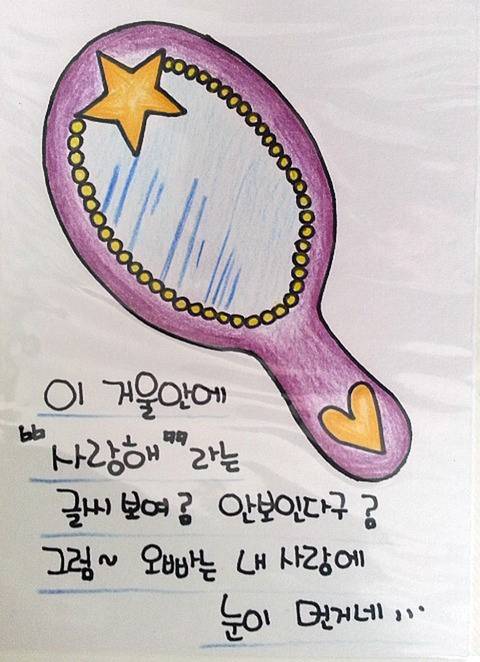 이 거울안에
"사랑해" 라는
글씨 보여? 안보인다구?
그럼~ 오빠는 내 사랑에
눈이 먼거네...